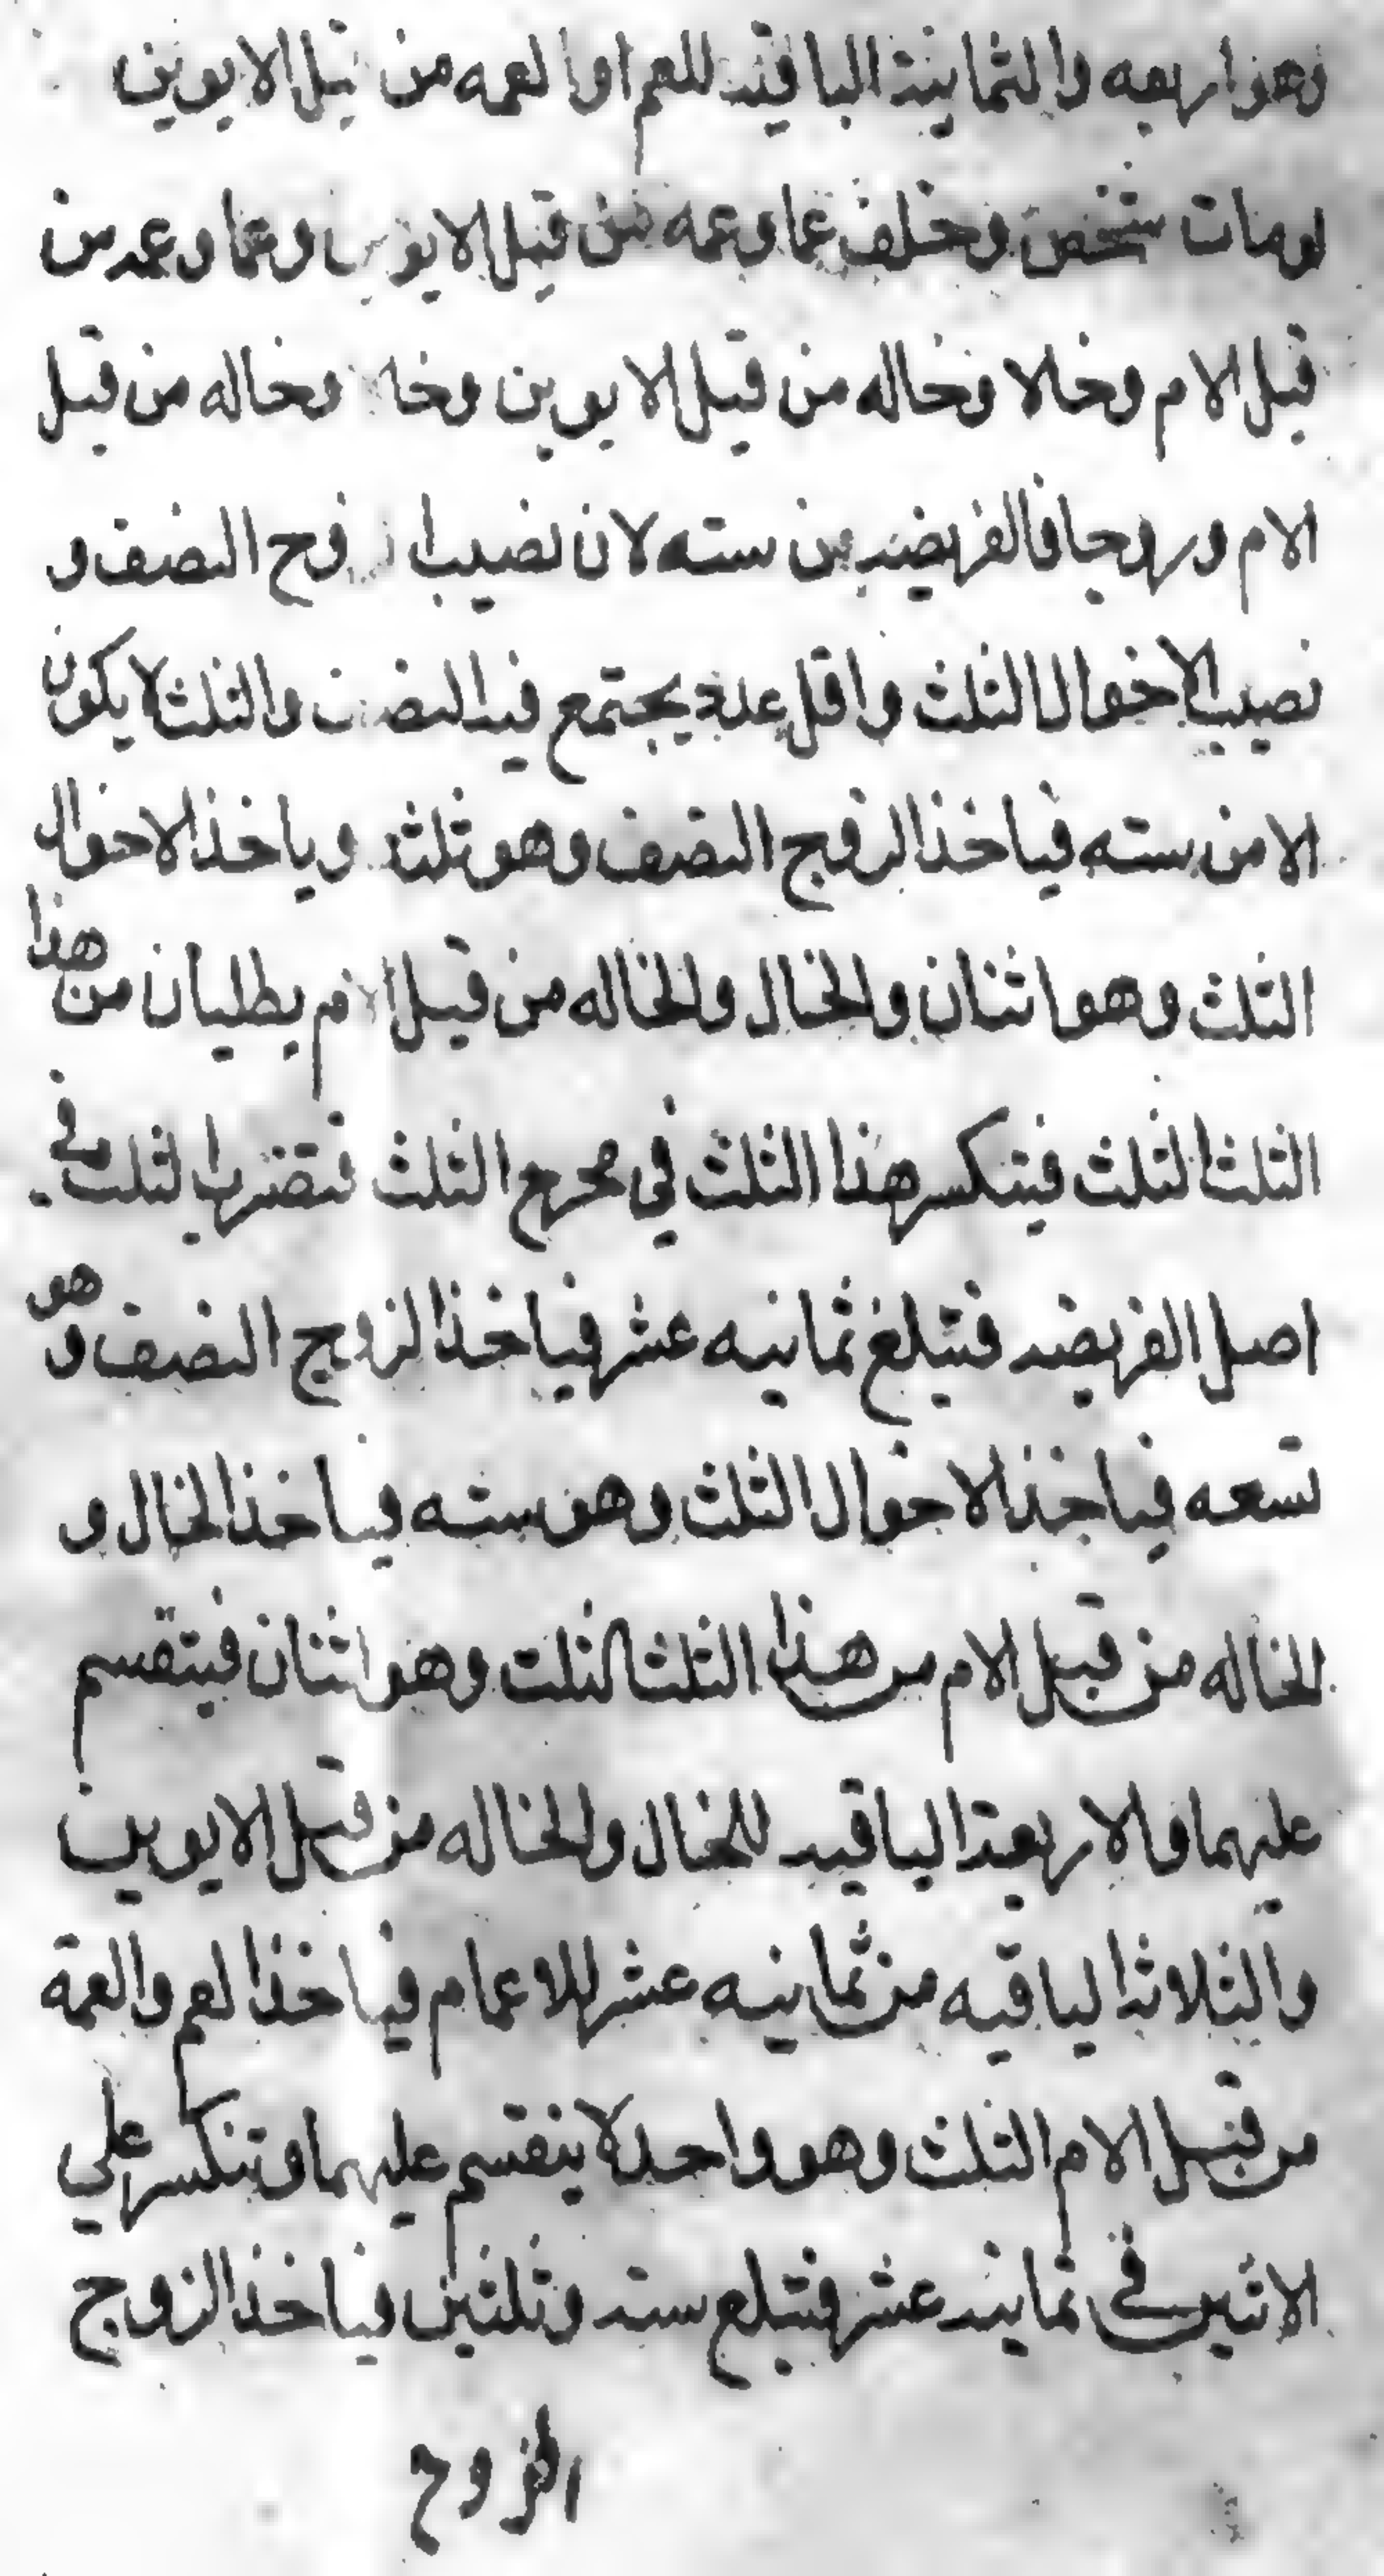 وهو اربعه والثمانية الباقيه للعم او العمه من قبل الابوين
لومات شخص وخلف عما وعمه من قبل الابوين وعما وعمه من
قبل الام وخالا وخاله من قبل الابوين وخالا وخاله من قبل
الام وزوجا فالفريضه من سته لان نصيب الزوج النصف و
نصيب الاخوال الثلث واقل عدد يجتمع فيه النصف والثلث لا يكون
الا من سته فياخذ الزوج النصف وهو ثلثة وياخذ الاخوال
الثلث وهو اثنان والخال والخاله من قبل الام يطلبان من هذا
الثلث الثلث فينكسر هذا الثلث في مخرج الثلث فتضرب الثلث في
اصل الفريضه فتبلغ ثمانيه عشر فياخذ الزوج النصف وهو
تسعه فياخذ الاخوال الثلث وهو سته فياخذ الخال و
الخاله من قبل الام من هذا الثلث الثلث وهو اثنان فيتقسم
عليهما والاربعة الباقيه للخال والخاله من قبل الابوين
والثلاثة الباقيه من ثمانيه عشر للاعمام فياخذ العم والعمة
من قبل الام الثلث وهو واحد لا ينقسم عليهما وتنكسر علي
الاثنين في ثمانيه عشر فتبلغ سته وثلثين فياخذ الزوج
الزوج